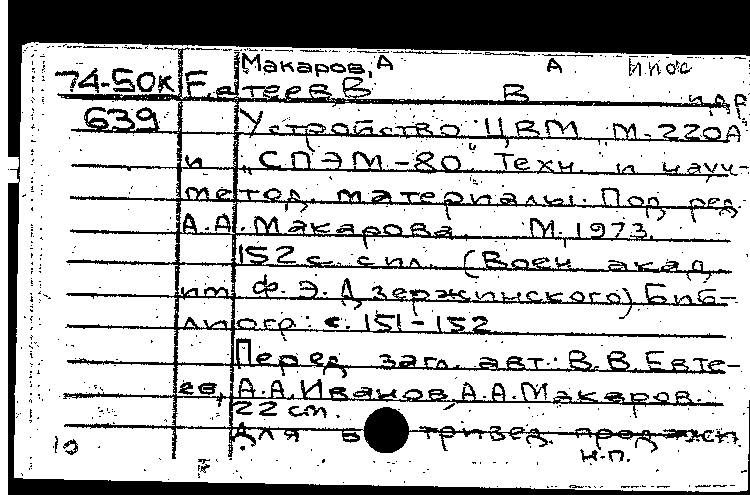 Макаров, А А ИПОС
74-50к Е.атеев, В В и др
639 Устройство ЦВМ „М-220А
и „СПЭМ-80". Техн. и науч-
метод. материалы. Под ред.
А.А. Макарова. М., 1973.
152 с. с ил. (Воен. акад.
им Ф.Э. Дзержинского) Биб-
лиогр: с. 151-152
Перед загл. авт.: В.В. Евте-
ев, А.А. Иванов, А.А. Макаров.
22 cm.
Для
н.п.
10